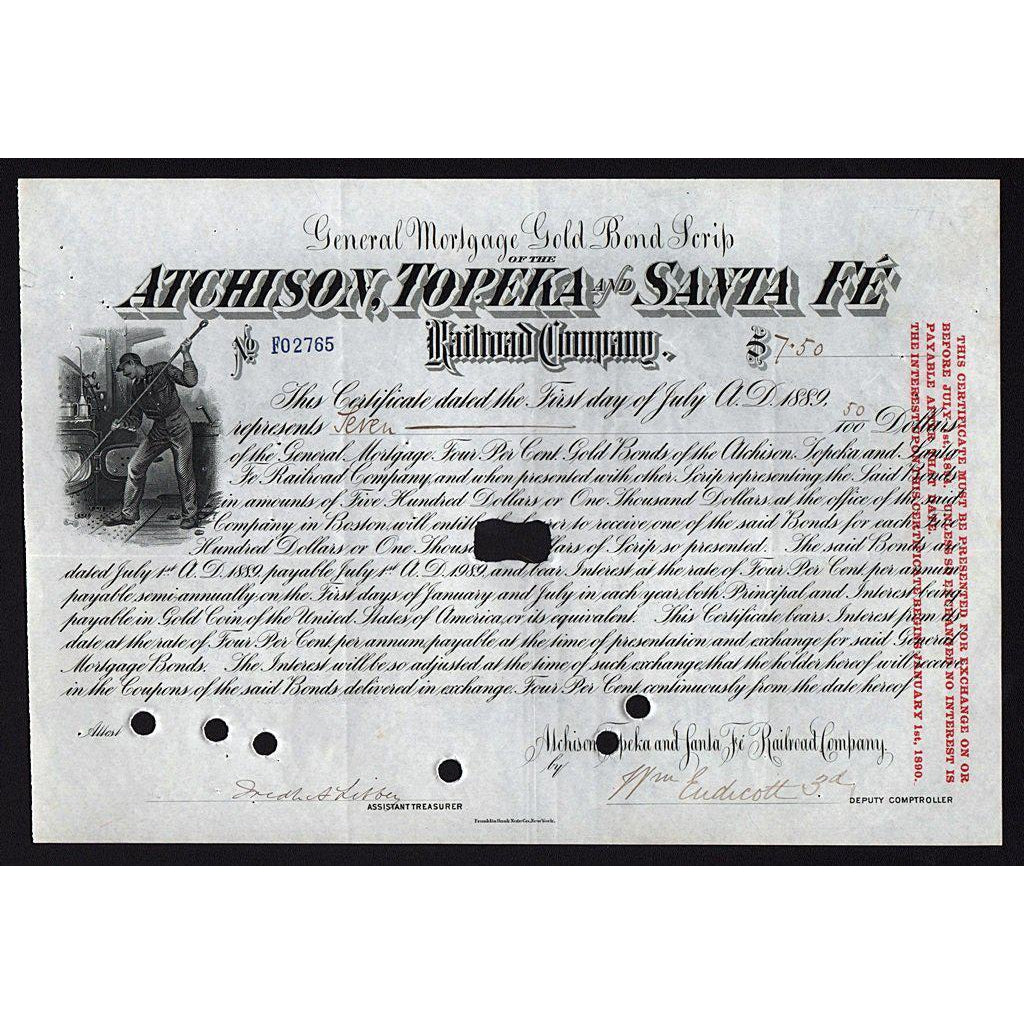 General Mortgage Gold Bond Scrip
OF THE
ATCHISON, TOPEKA AND SANTA FÉ
Railroad Company.
No F02765
$ 7.50
This Certificate dated the First day of July A.D. 1889,
represents Seven 50/100 Dollars
of the General Mortgage Four Per Cent. Gold Bonds of the Atchison, Topeka and Santa
Fe Railroad Company, and when presented with other Scrip representing the Said Bonds
in amounts of Five Hundred Dollars or One Thousand Dollars, at the office of the said
Company in Boston, will entitle to receive one of the said Bonds for each Five
Hundred Dollars or One Thous of Scrip so presented. The said Bonds are
dated July 1st A.D. 1889, payable July 1st A.D. 1989, and bear Interest at the rate of Four Per Cent. per annum,
payable semi-annually on the First days of January and July in each year, both Principal and Interest being
payable in Gold Coin of the United States of America, or its equivalent. This Certificate bears Interest from its
date at the rate of Four Per Cent. per annum, payable at the time of presentation and exchange for said General
Mortgage Bonds. The Interest will be so adjusted at the time of such exchange, that the holder hereof will receive
in the Coupons of the said Bonds delivered in exchange, Four Per Cent. continuously from the date hereof
Attest
Atchison, Topeka and Santa Fé Railroad Company,
by
Wm Endicott 3d
ASSISTANT TREASURER
DEPUTY COMPTROLLER
Franklin Bank Note Co., New York.
THIS CERTIFICATE MUST BE PRESENTED FOR EXCHANGE ON OR
BEFORE JULY 1st, UNLESS SO EXCHANGED NO INTEREST IS
PAYABLE AFTER THAT DATE.
THE INTEREST UPON THIS CERTIFICATE BEGINS JANUARY 1st, 1890.